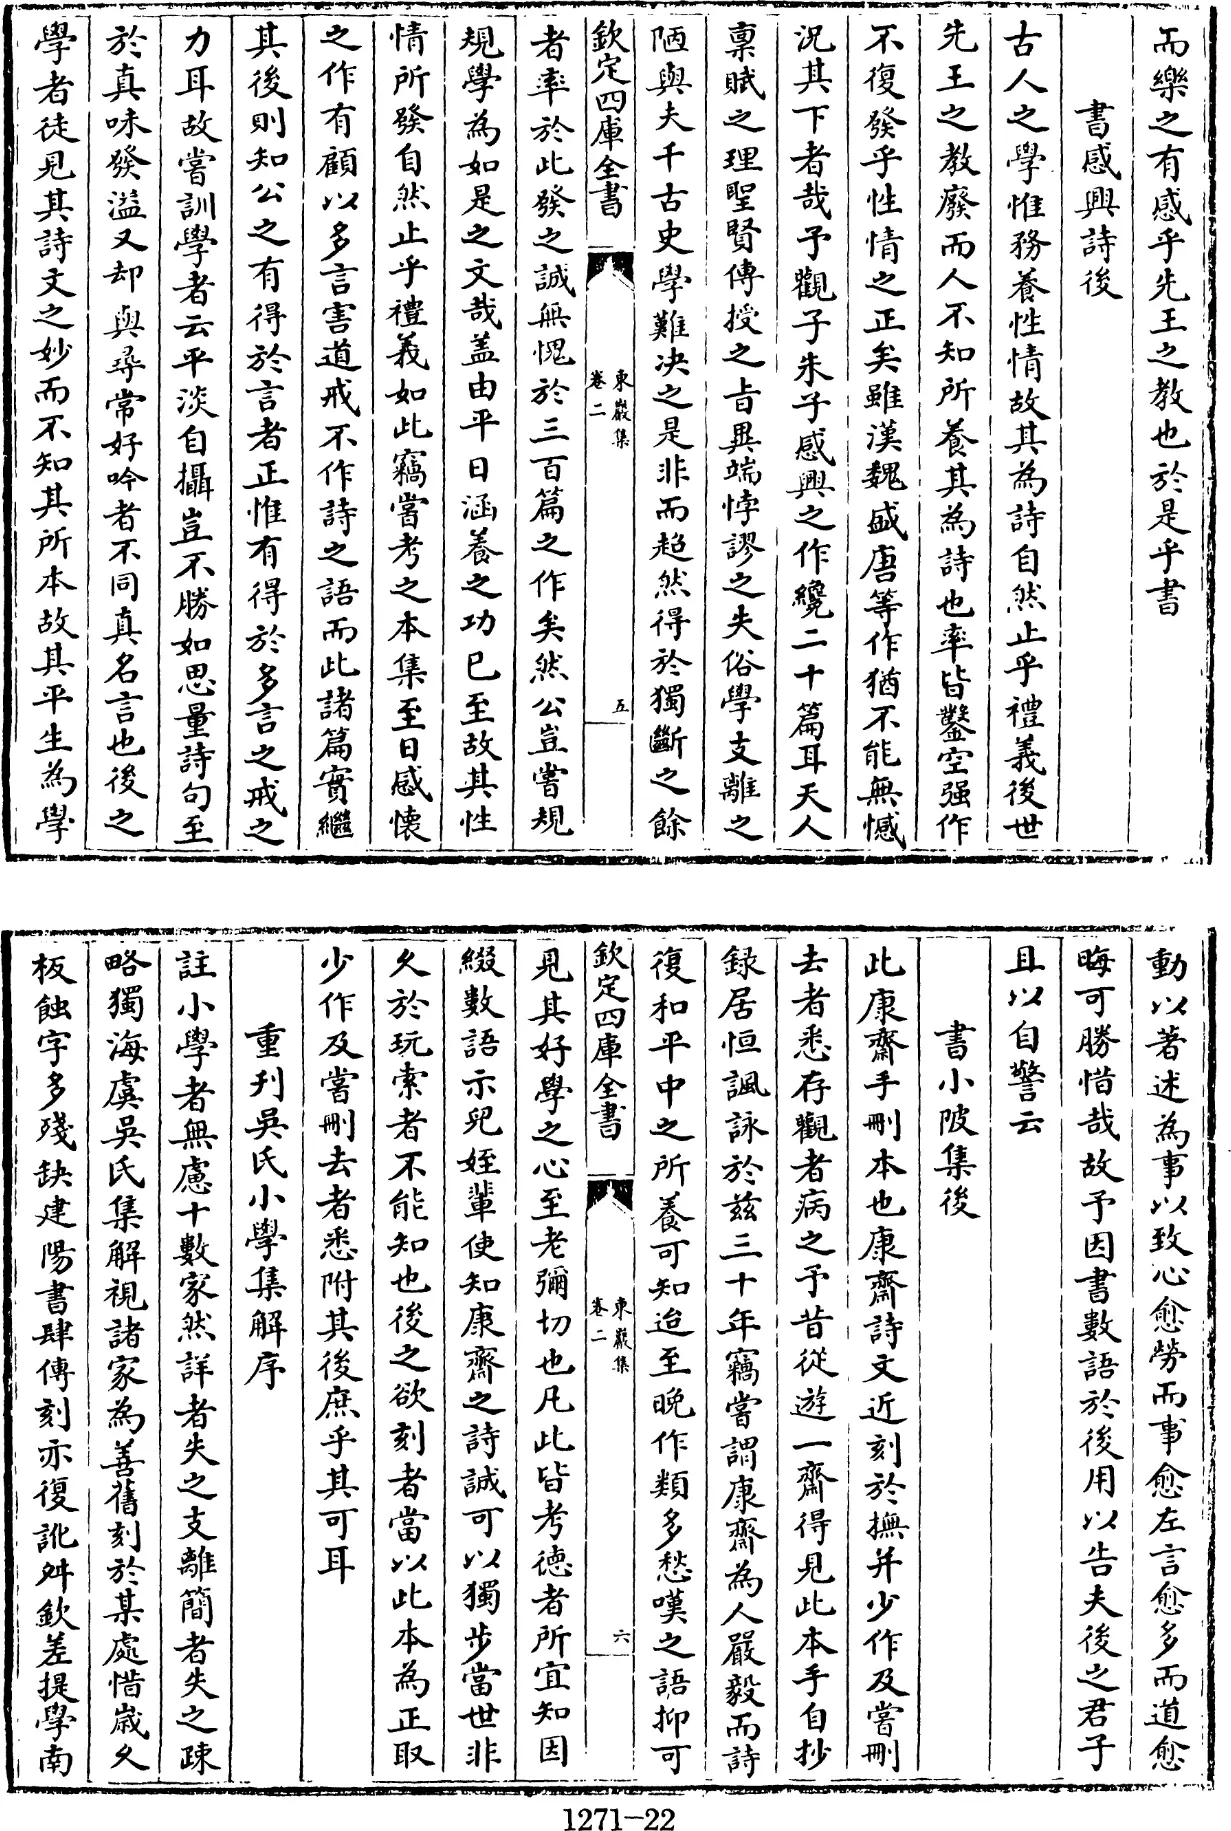 而樂之有感乎先王之教也於是乎書
書感興詩後
古人之學惟務養性情故其為詩自然止乎禮義後世
先王之教廢而人不知所養其為詩也率皆鑿空强作
不復發乎性情之正矣雖漢魏盛唐等作猶不能無憾
況其下者哉予觀子朱子感興之作纔二十篇耳天人
稟賦之理聖賢傳授之㫖異端悖謬之失俗學支離之
陋與夫千古史學難決之是非而超然得於獨斷之餘
欽定四庫全書
東巖集
卷二
五
者率於此發之誠無愧於三百篇之作矣然公豈嘗規
規學為如是之文哉盖由平日涵養之功已至故其性
情所發自然止乎禮義如此竊嘗考之本集至日感懷
之作有顧以多言害道戒不作詩之語而此諸篇實繼
其後則知公之有得於言者正惟有得於多言之戒之
力耳故嘗訓學者云平淡自攝豈不勝如思量詩句至
於真味發溢又却與尋常好吟者不同真名言也後之
學者徒見其詩文之妙而不知其所本故其平生為學
動以著述為事以致心愈勞而事愈左言愈多而道愈
晦可勝惜哉故予因書數語於後用以告夫後之君子
且以自警云
書小陂集後
此康齋手刪本也康齋詩文近刻於撫并少作及嘗刪
去者悉存觀者病之予昔從遊一齋得見此本手自抄
錄居恒諷詠於兹三十年竊嘗謂康齋為人嚴毅而詩
復和平中之所養可知迨至晚作類多愁嘆之語抑可
欽定四庫全書
東巖集
卷二
六
見其好學之心至老彌切也凡此皆考德者所宜知因
綴數語示兒姪輩使知康齋之詩誠可以獨步當世非
久於玩索者不能知也後之欲刻者當以此本為正取
少作及嘗刪去者悉附其後庶乎其可耳
重刋吳氏小學集解序
註小學者無慮十數家然詳者失之支離簡者失之疎
略獨海虞吳氏集解視諸家為善舊刻於某處惜歲久
板蝕字多殘缺建陽書肆傳刻亦復訛舛欽差提學南
1271-22